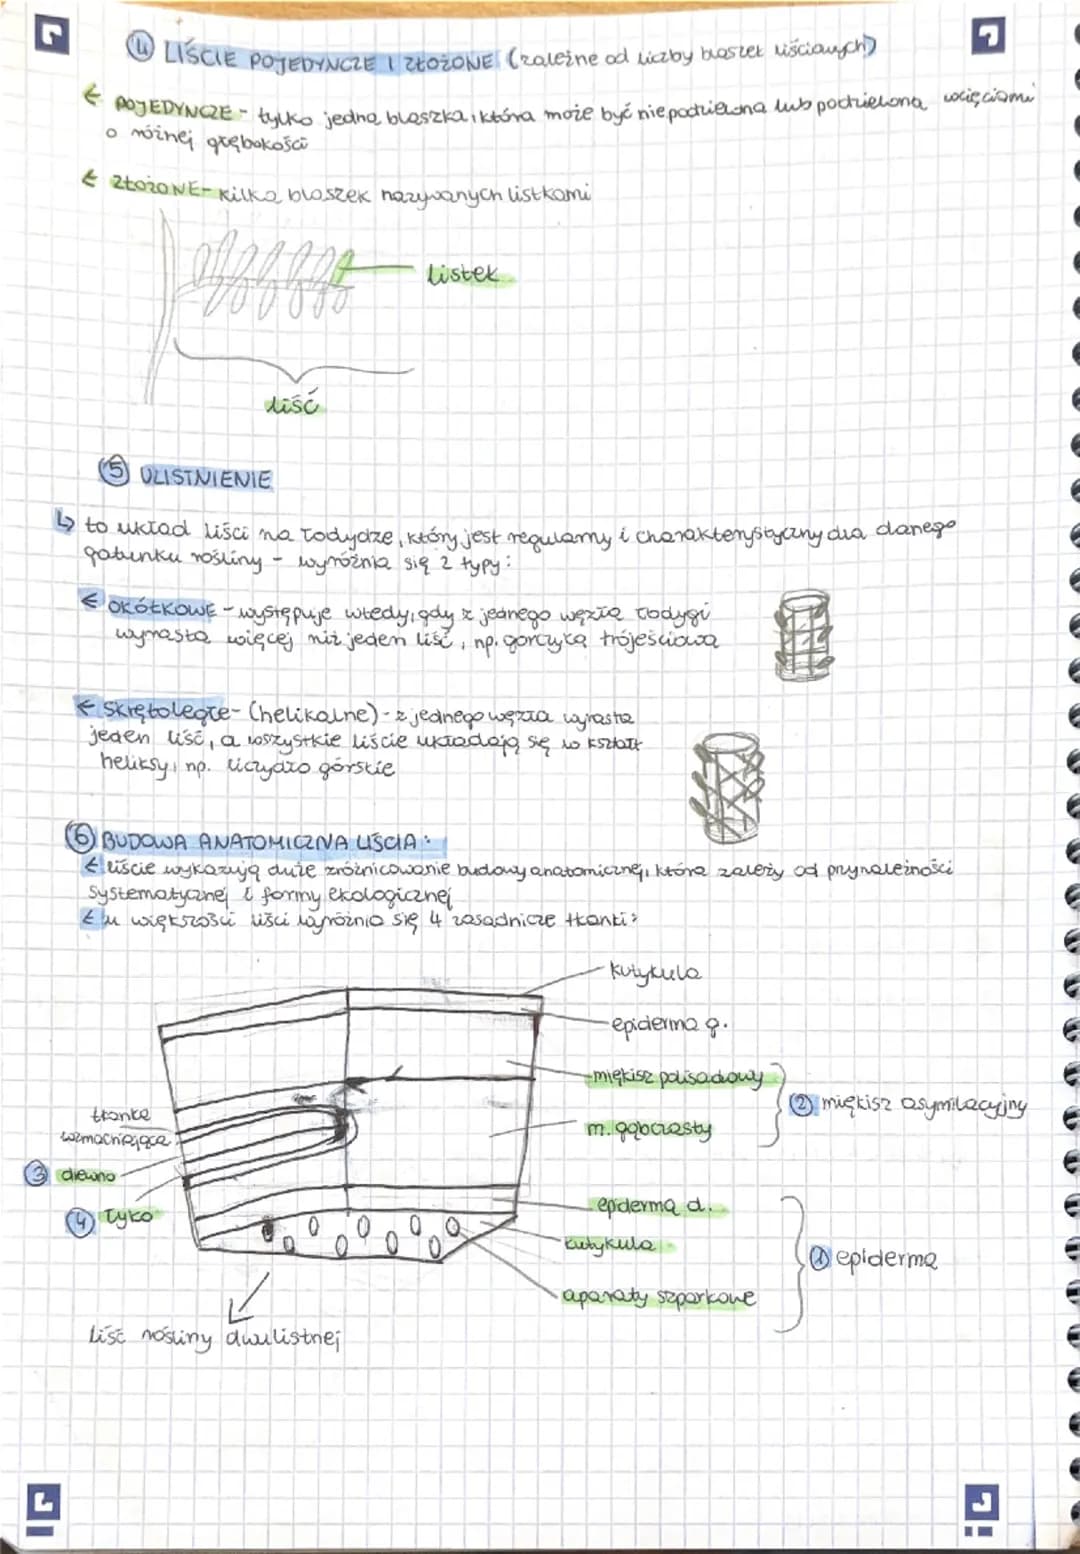 ④ LIŚCIE POJEDYNCZE I ZŁOŻONE (zależne od liczby blaszek liściowych)
← POJEDYNCZE - tylko jedna blaszka, która może być niepodzielona lub podzielona wcięciami
o różnej głębokości
← ZŁOŻONE - kilka blaszek nazywanych listkami
listek
liść
⑤ ULISTNIENIE
↳ to układ liści na łodydze, który jest regularny i charakterystyczny dla danego
gatunku rośliny - wyróżnia się 2 typy:
← OKÓŁKOWE - występuje wtedy, gdy z jednego węzła łodygi
wyrasta więcej niż jeden liść, np. gorczyca trójeściowa
← Skrętoległe - (helikalne) - z jednego węzła wyrasta
jeden liść, a wszystkie liście układają się w kształt
heliksy, np. liczydło górskie
⑥ BUDOWA ANATOMICZNA LIŚCIA:
← liście wykazują duże zróżnicowanie budowy anatomicznej, która zależy od przynależności
systematycznej i formy ekologicznej
← u większości liści wyróżnia się 4 zasadnicze tkanki:
kutykula
epiderma g.
miękisz palisadowy
② miękisz asymilacyjny
tkanka
wzmacniająca
m. gąbczasty
③ drewno
④ łyko
epiderma d.
kutykula
① epiderma
aparaty szparkowe
liść rośliny dwulistnej